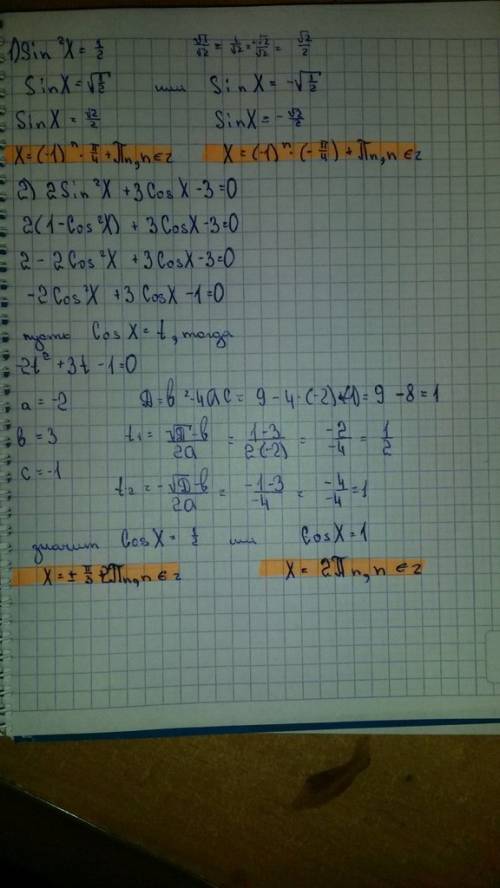 1) Sin²X = 1/2 √1/√2 = 1/√2 = √2/√2 = √2/2
SinX = √1/2 или SinX = -√1/2
SinX = √2/2 SinX = -√2/2
X = (-1)ⁿ · π/4 + πn, n ∈ z X = (-1)ⁿ · (-π/4) + πn, n ∈ z
2) 2Sin²X + 3CosX - 3 = 0
2(1 - Cos²X) + 3CosX - 3 = 0
2 - 2Cos²X + 3CosX - 3 = 0
-2Cos²X + 3CosX - 1 = 0
пусть CosX = t, тогда
-2t² + 3t - 1 = 0
a = -2 D = в² - 4ac = 9 - 4 · (-2) · (-1) = 9 - 8 = 1
в = 3 t₁ = √D - в/2a = 1-3/2(-2) = -2/-4 = 1/2
c = -1 t₂ = -√D - в/2a = -1-3/-4 = -4/-4 = 1
значит CosX = 1/2 или CosX = 1
X = ± π/3 + 2πn, n ∈ z X = 2πn, n ∈ z